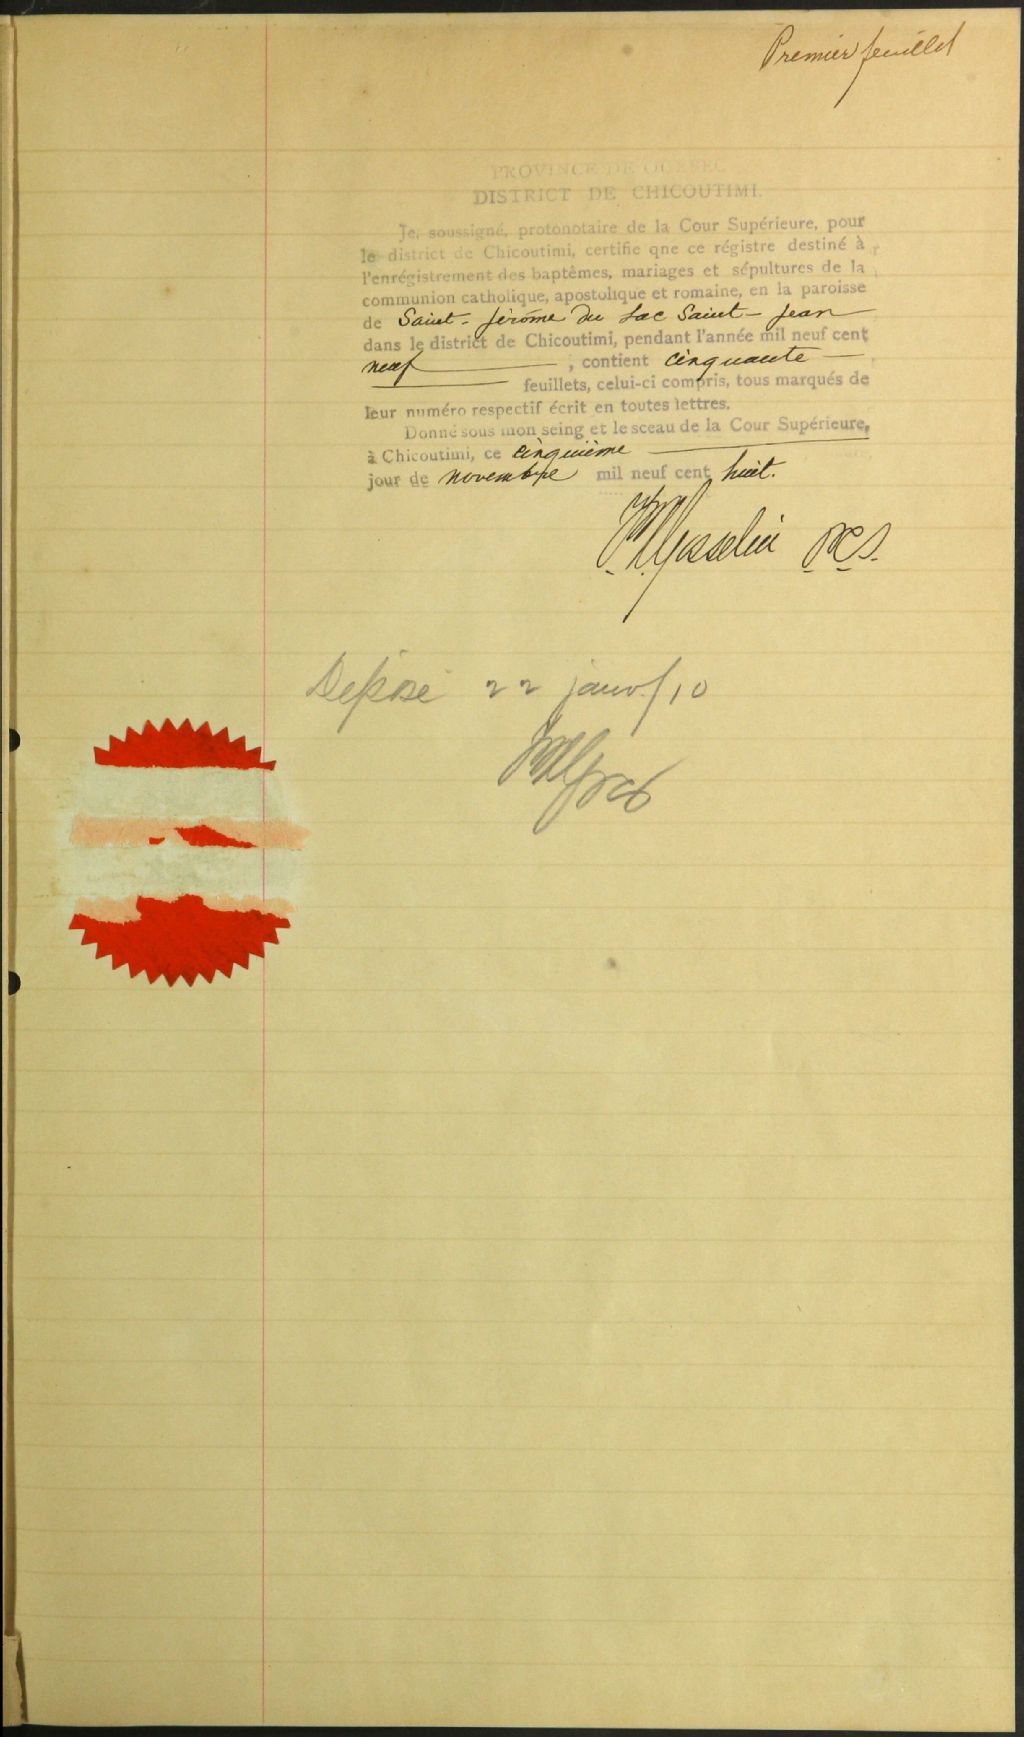 Premier feuillet
PROVINCE DE QUEBEC
DISTRICT DE CHICOUTIMI.
Je, soussigné, protonotaire de la Cour Supérieure, pour
le district de Chicoutimi, certifie qne ce régistre destiné à
l'enrégistrement des baptêmes, mariages et sépultures de la
communion catholique, apostolique et romaine, en la paroisse
de Saint-Jérôme du Lac Saint-Jean
dans le district de Chicoutimi, pendant l'année mil neuf cent
neuf ; contient cinquante
feuillets, celui-ci compris, tous marqués de
leur numéro respectif écrit en toutes lettres.
Donné sous mon seing et le sceau de la Cour Supérieure,
à Chicoutimi, ce cinquième
jour de novembre mil neuf cent huit.
Gosselin P.C.S.
Déposé 22 janv/10